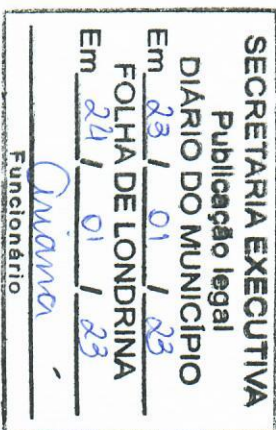 SECRETARIA EXECUTIVA
Publicação legal
DIÁRIO DO MUNICÍPIO
Em 23 / 01 / 23
FOLHA DE LONDRINA
Em 24 / 01 / 23
Funcionário